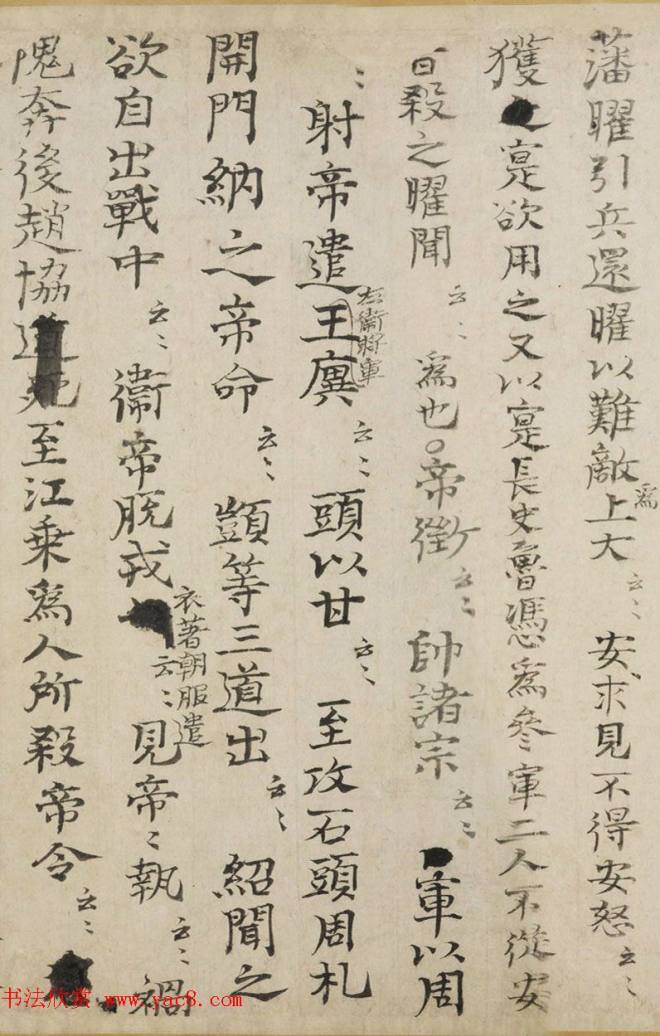 藩曜引兵還曜以難敵爲上大云〻安求見不得安怒云〻
獲之寔欲用之又以寔長史魯憑爲參軍二人不從安
曰殺之曜聞云〻爲也○帝徵云〻帥諸宗云〻軍以周
〻射帝遣王廙云〻頭以甘云〻至攻石頭周札
右衞將軍
開門納之帝命云〻顗等三道出云〻紹聞之
欲自出戰中云〻衞帝脫戎云〻見帝〻執云〻
衣著朝服遣
隗奔後趙協道死至江乘爲人所殺帝令云〻
书法欣赏 www.yac8.com